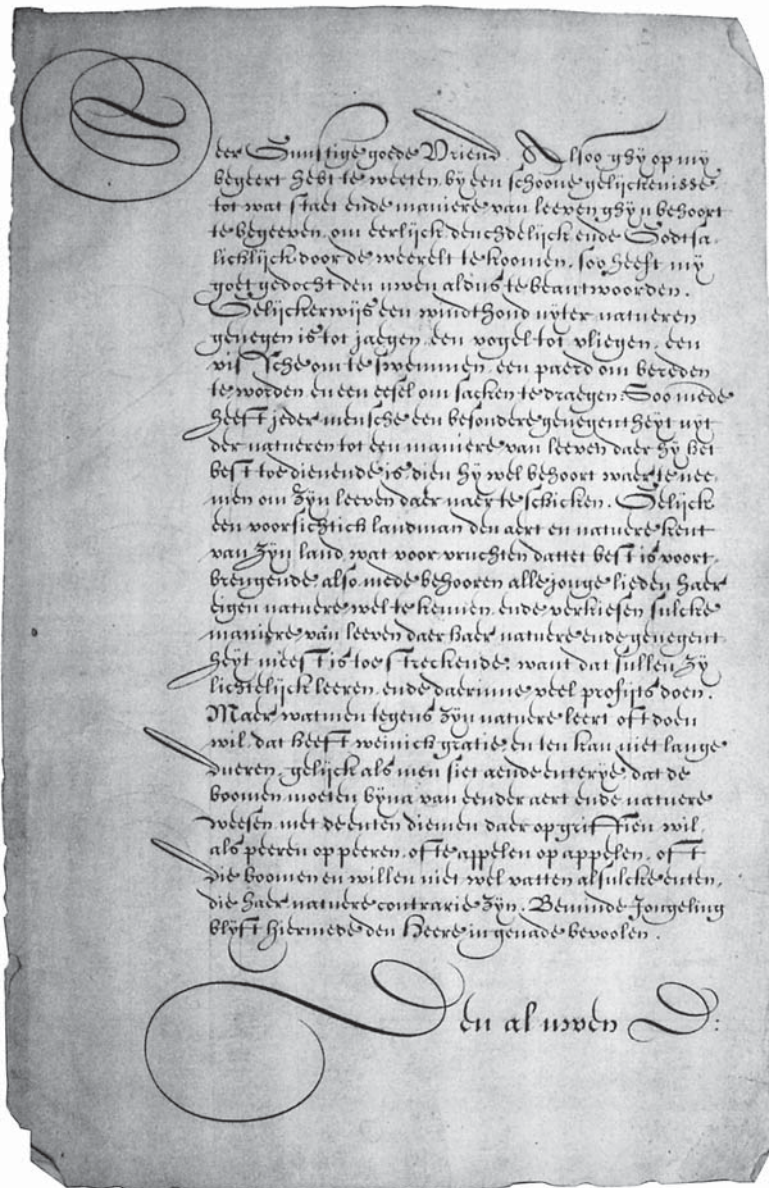 Seer Gunstige goede Vriend. Alsoo ghy op my
begeert hebt te weeten, by een schoone gelijckenisse
tot wat staet ende maniere van leeven ghy u behoort
te begeeven, om eerlijck deuchdelijck ende Godtsa-
lichlijck door de weerelt te koomen, soo heeft my
goet gedocht den uwen aldus te beantwoorden.
Gelijckerwijs een windthond uyter natueren
genegen is tot jaegen, een vogel tot vliegen, een
vissche om te swemmen, een paerd om bereden
te worden en een eesel om sacken te draegen: Soo mede
heeft jeder mensche een besondere genegentheyt uyt
der natueren tot een maniere van leeven daer hy het
best toe dienende is, dien hy wel behoort waer te nee-
men om zyn leeven daer naer te schicken. Gelijck
een voorsichtich landman den aert en natuere kent
van zyn land, wat voor vruchten dattet best is voort-
brengende, also mede behooren alle jonge lieden haer
eigen natuere wel te kennen, ende verkiesen sulcke
maniere van leeven daer haer natuere ende genegent-
heyt meest is toe streckende; want dat sullen zy
lichtelijck leeren, ende daerinne veel profijts doen.
Maer watmen tegens zyn natuere leert oft doen
wil, dat heeft weinich gratie, en ten kan niet lange
dueren, gelijck als men siet aende enterye, dat de
boomen moeten byna van eender aert ende natuere
weesen met de enten diemen daer op griffien wil,
als peeren op peeren, ofte appelen op appelen, oft
die boomen en willen niet wel vatten alsulcke enten,
die haer natuere contrarie zyn. Beminde Jongeling
blyft hiermede den Heere in genade bevoolen.
Den al uwen D: